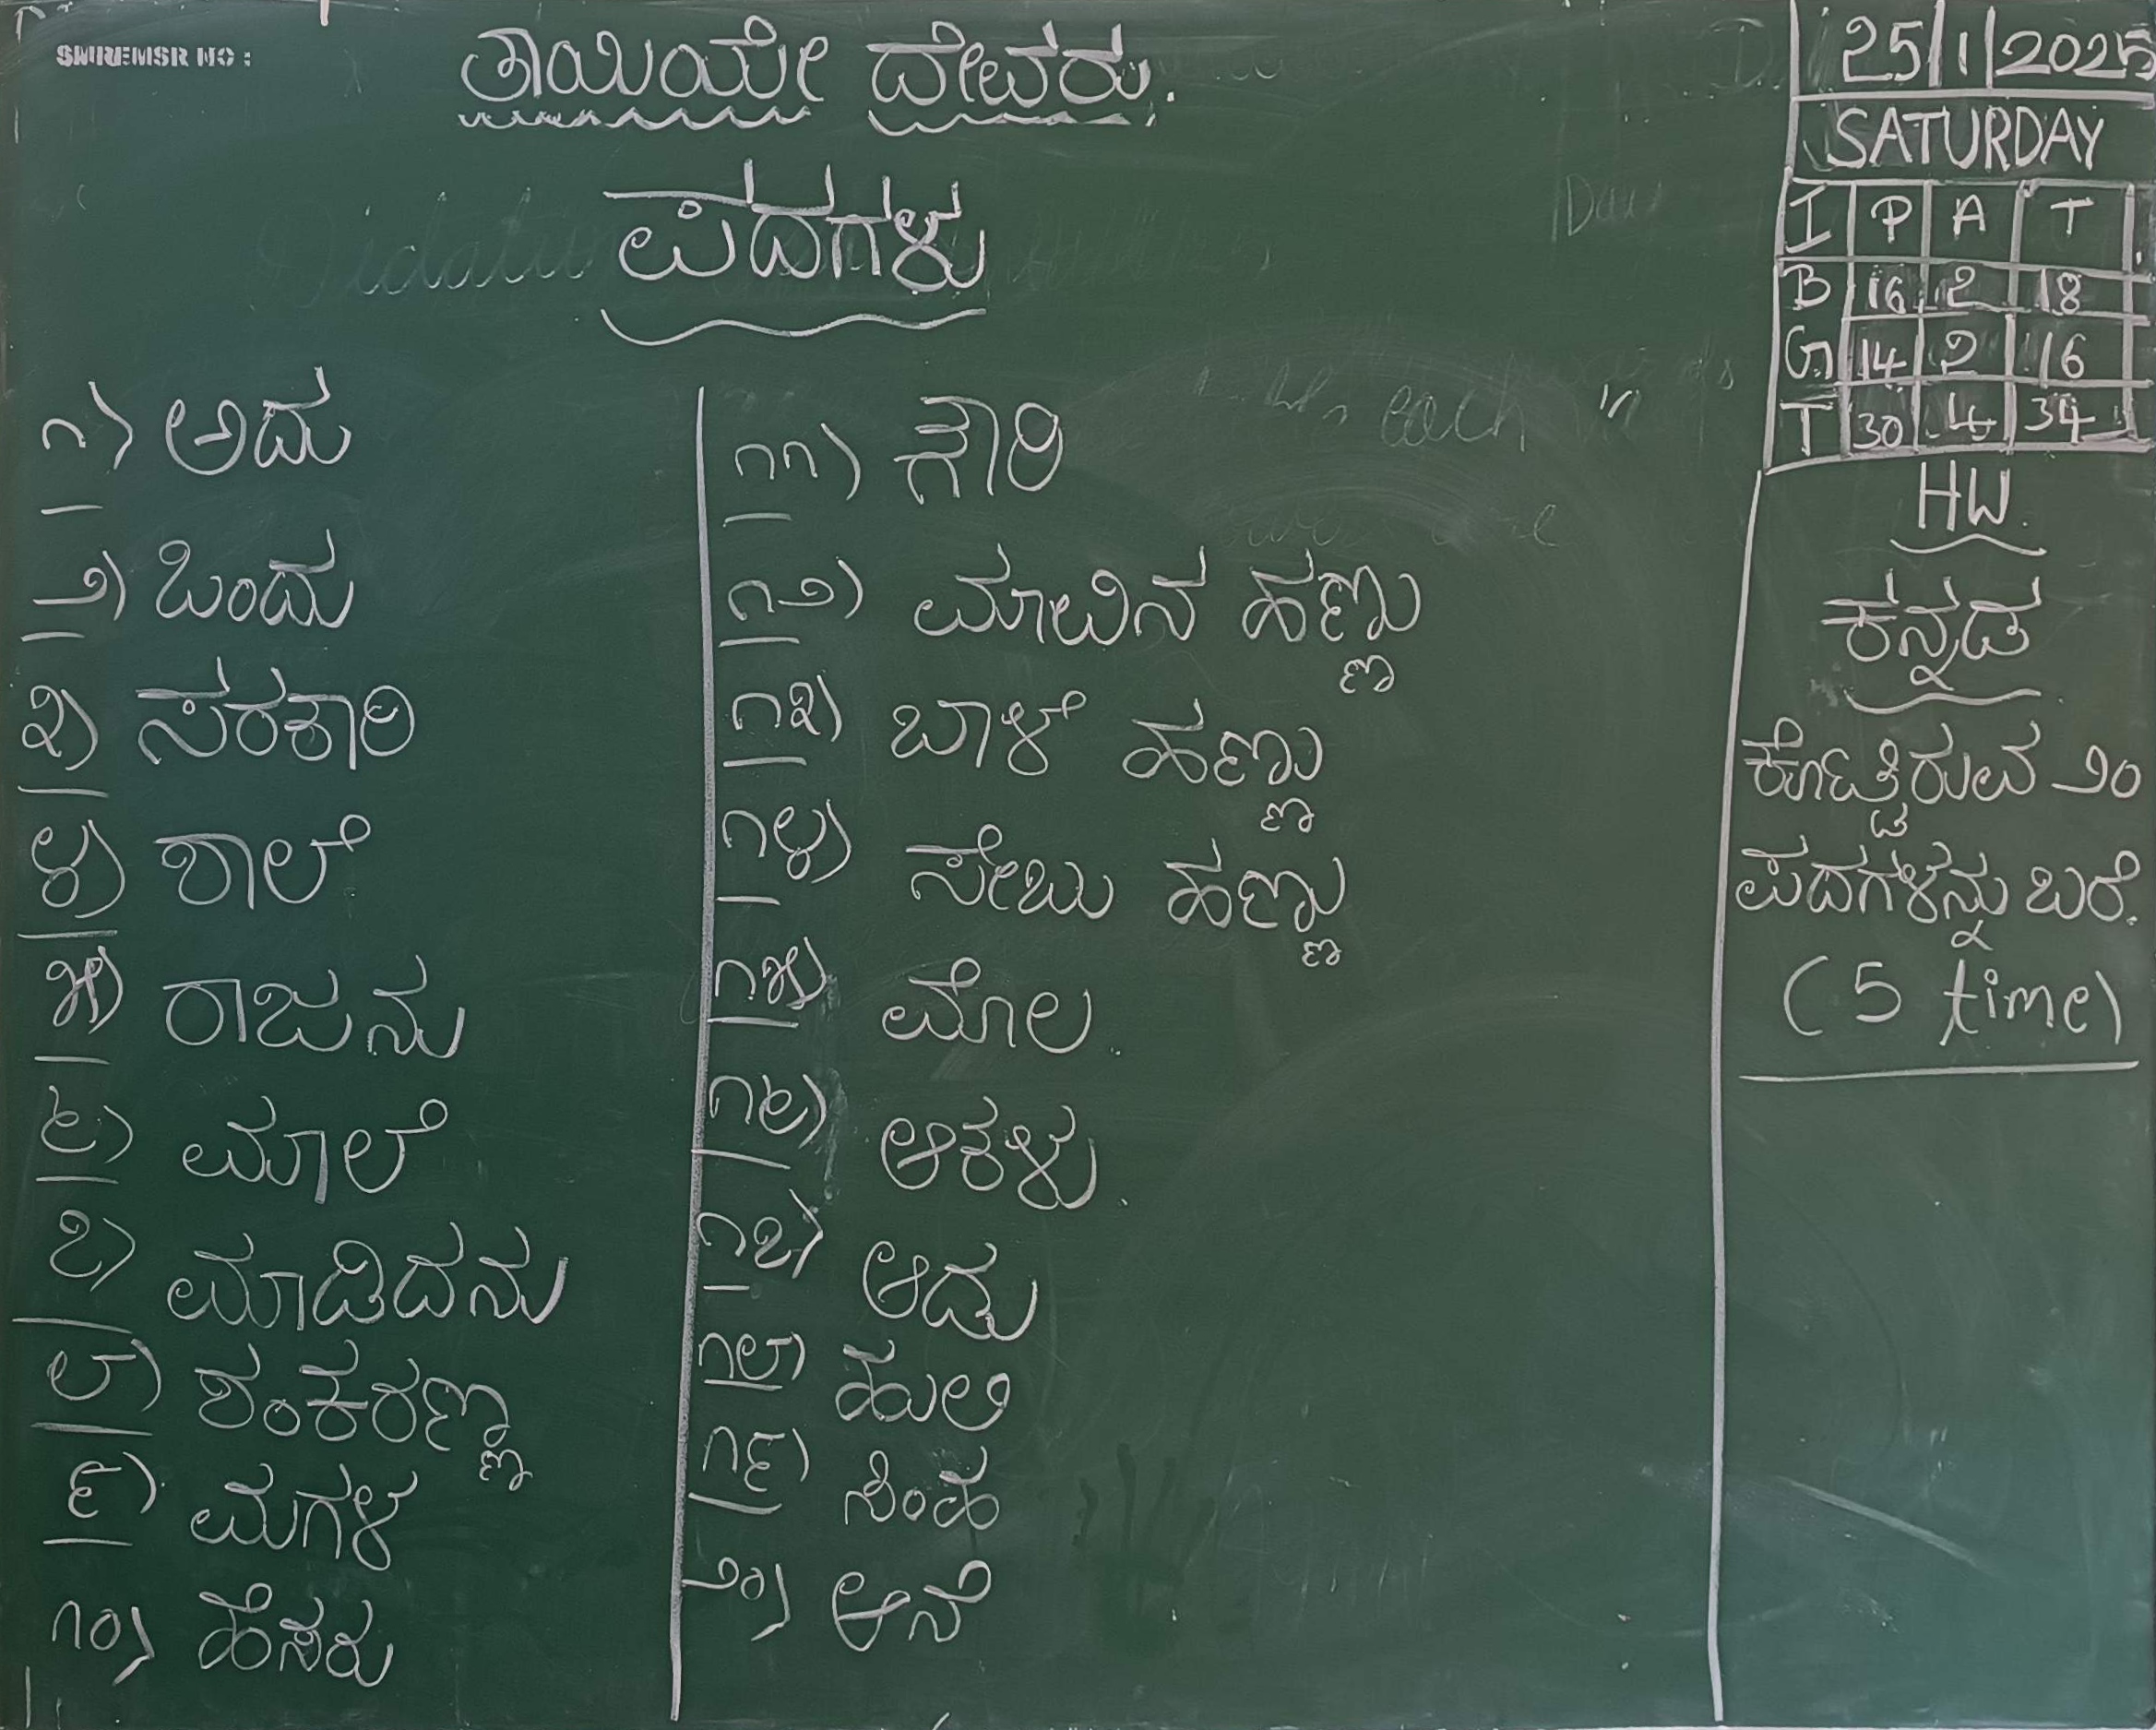 ತಾಯಿಯೇ ದೇವರು.
ಪದಗಳು
೧) ಅದು
೨) ಒಂದು
೩) ಸರಕಾರಿ
೪) ಶಾಲೆ
೫) ರಾಜುನು
೬) ಮಾಲೆ
೭) ಮಾಡಿದನು
೮) ಶಂಕರಣ್ಣ
೯) ಮಗಳ
೧೦) ಹೆಸರು
೧೧) ಗೌರಿ
೧೨) ಮಾವಿನ ಹಣ್ಣು
೧೩) ಬಾಳೆ ಹಣ್ಣು
೧೪) ಸೇಬು ಹಣ್ಣು
೧೫) ಮೊಲ.
೧೬) ಆಕಳು.
೧೭) ಆಡು
೧೮) ಹುಲಿ
೧೯) ಸಿಂಹ
೨೦) ಆನೆ
25/1/2025
SATURDAY
I P A T
B 16 2 18
G 14 2 16
T 30 4 34
HW.
ಕನ್ನಡ
ಕೊಟ್ಟಿರುವ ೨೦
ಪದಗಳನ್ನು ಬರೆ.
(5 time)